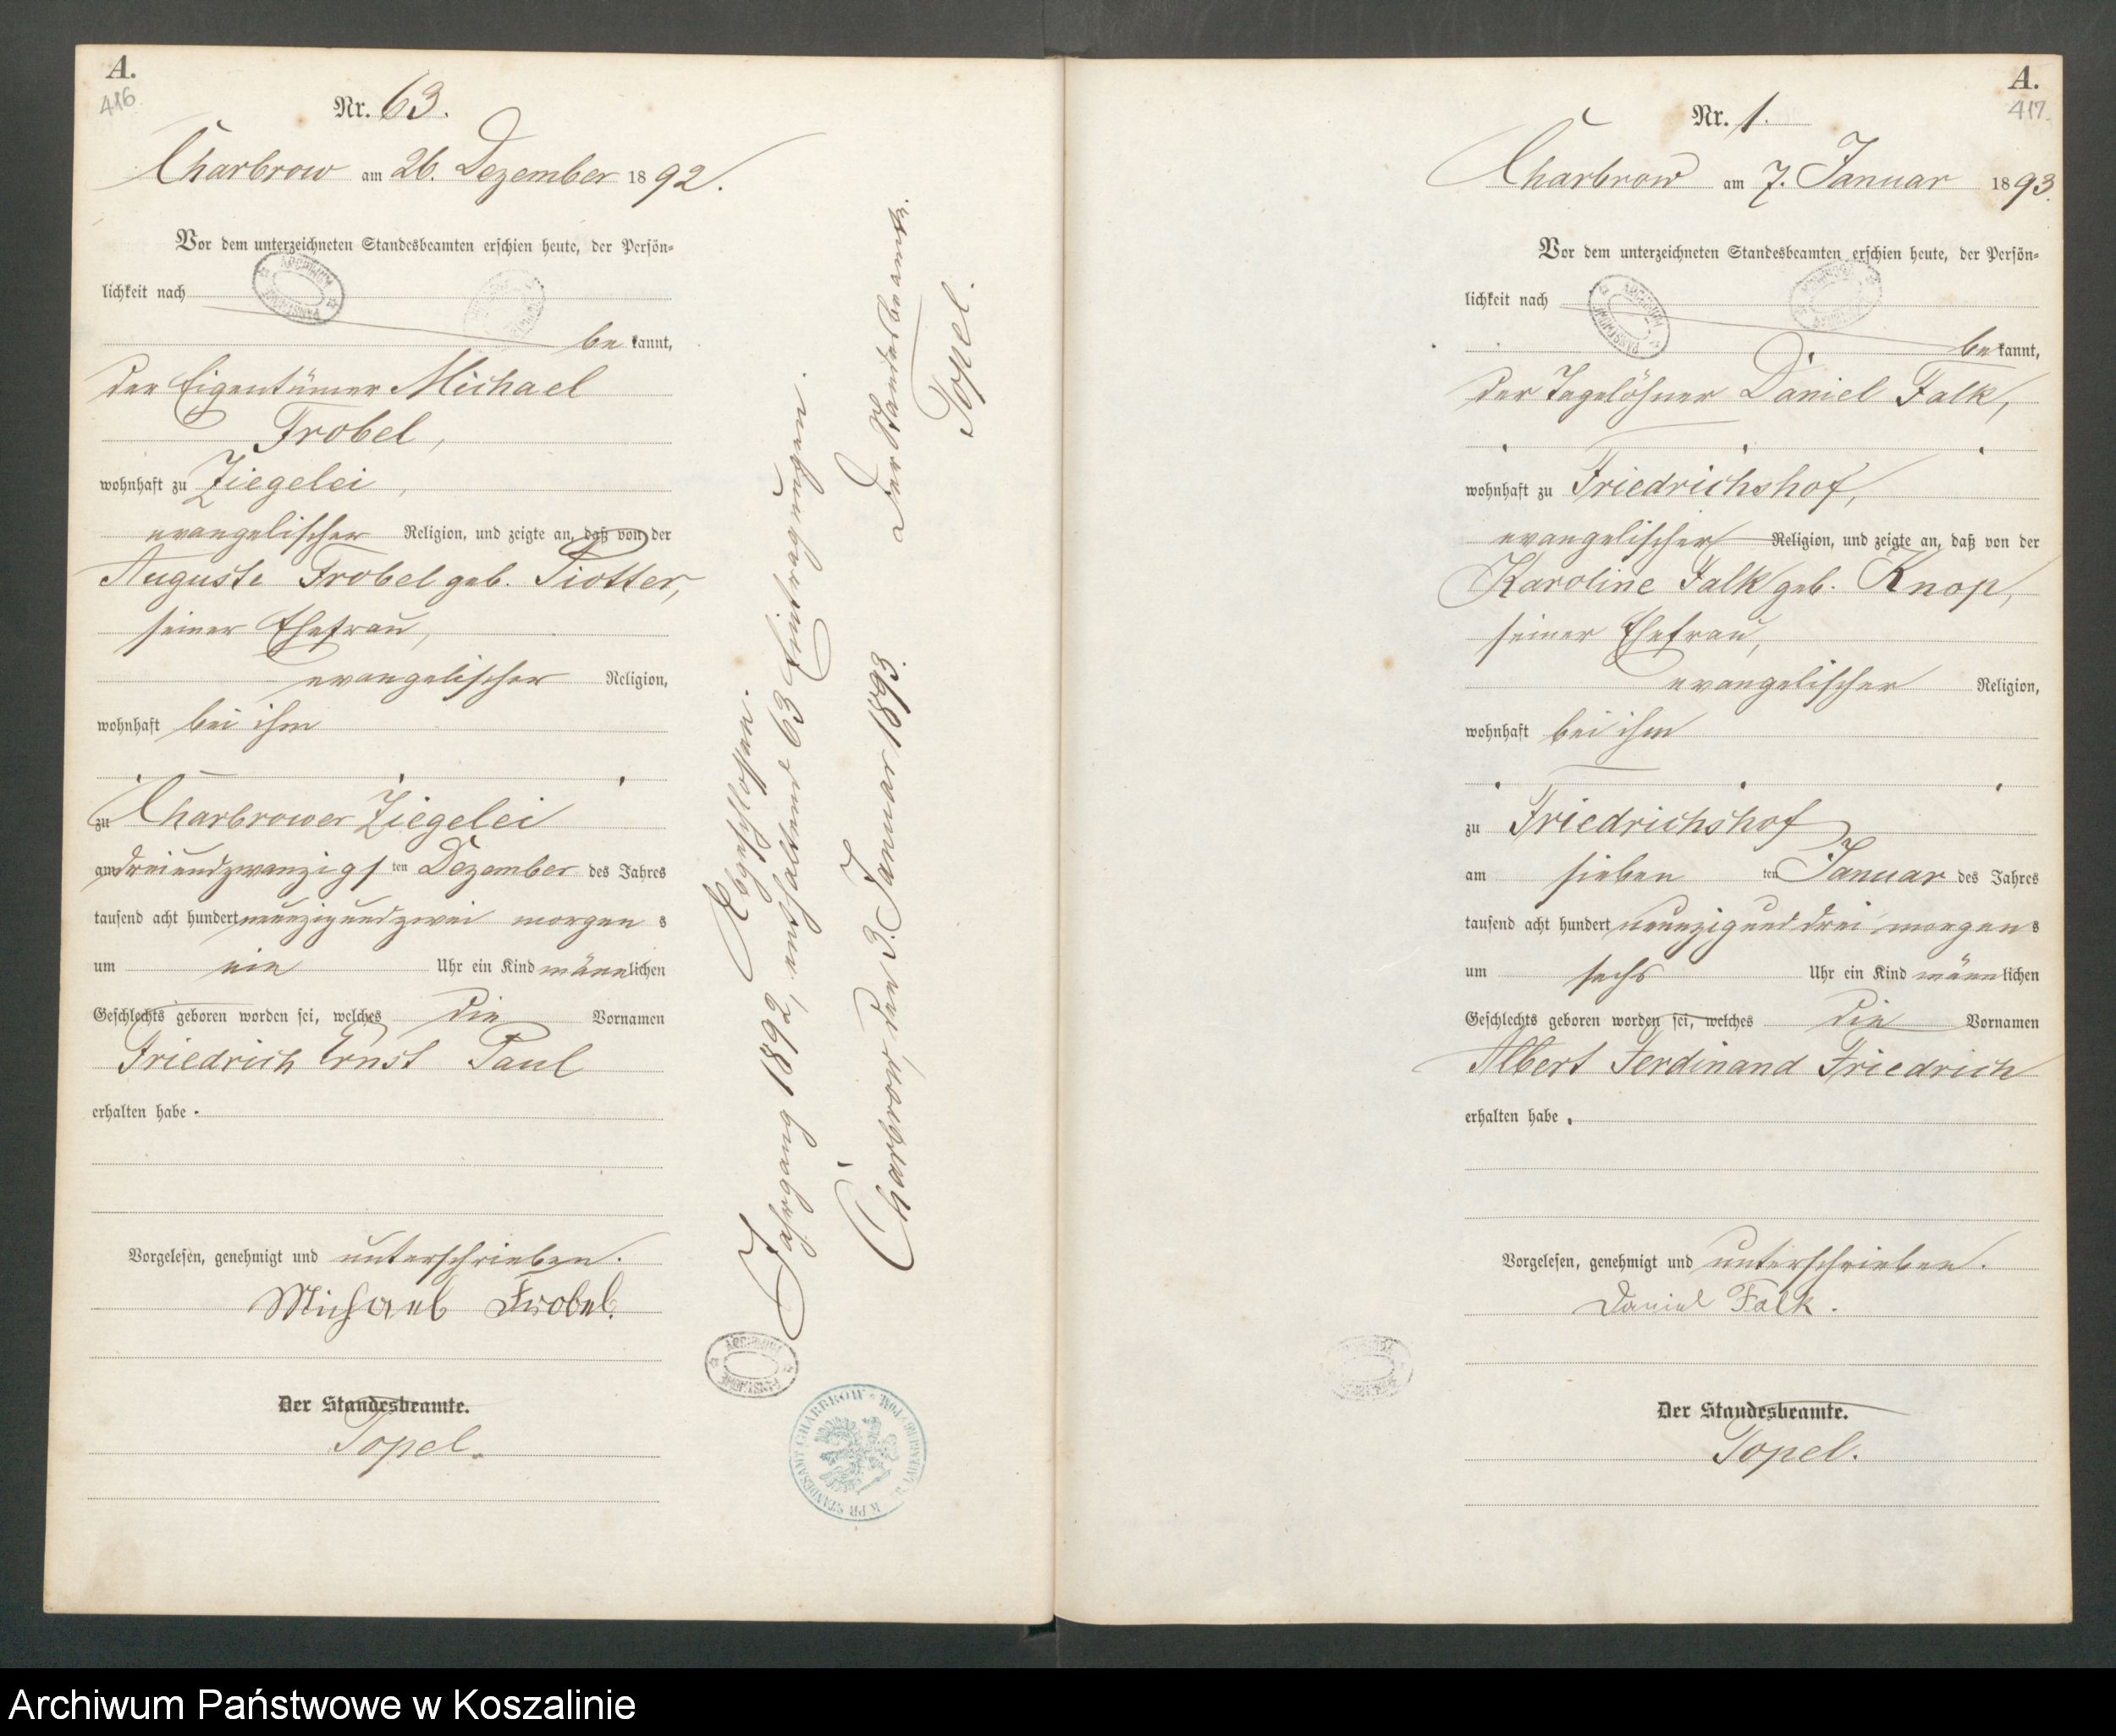 A.
416
Nr. 63.
Charbrow am 26. Dezember 1892.
Vor dem unterzeichneten Standesbeamten erschien heute, der Persön-
lichkeit nach
be kannt,
der Eigentümer Michael
Trobel,
wohnhaft zu Ziegelei,
evangelischer Religion, und zeigte an, daß von der
Auguste Trobel geb. Piotter,
seiner Ehefrau,
evangelischer Religion,
wohnhaft bei ihm
zu Charbrower Ziegelei
am dreiundzwanzigsten Dezember des Jahres
tausend acht hundert neunzig und zwei morgens
um ein Uhr ein Kind männlichen
Geschlechts geboren worden sei, welches die Vornamen
Friedrich Ernst Paul
erhalten habe.
Vorgelesen, genehmigt und unterschrieben.
Michael Trobel.
Der Standesbeamte.
Topel.
Jahrgang 1892, enthaltend 63 Eintragungen.
Abgeschlossen.
Charbrow, den 3. Januar 1893.
Der Standesbeamte.
Topel.
ARCHIWUM PAŃSTWOWE
K. PR. STANDESAMT CHARBROW
A.
417.
Nr. 1.
Charbrow am 7. Januar 1893.
Vor dem unterzeichneten Standesbeamten erschien heute, der Persön-
lichkeit nach
be kannt,
der Tagelöhner Daniel Falk,
wohnhaft zu Friedrichshof,
evangelischer Religion, und zeigte an, daß von der
Karoline Falk geb. Knop,
seiner Ehefrau,
evangelischer Religion,
wohnhaft bei ihm
zu Friedrichshof
am sieben ten Januar des Jahres
tausend acht hundert neunzig und drei morgens
um sechs Uhr ein Kind männlichen
Geschlechts geboren worden sei, welches die Vornamen
Albert Ferdinand Friedrich
erhalten habe.
Vorgelesen, genehmigt und unterschrieben.
Daniel Falk.
Der Standesbeamte.
Topel.
Archiwum Państwowe w Koszalinie